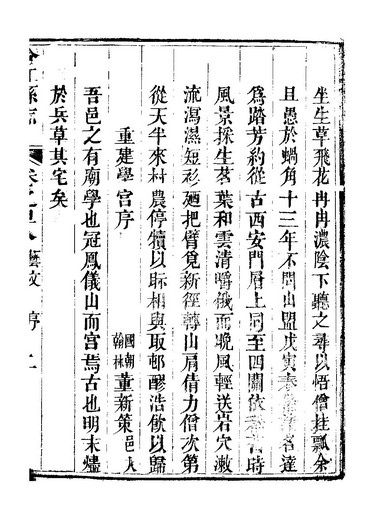 坐生草飛花冉冉濃陰下聽之尋以悟僧挂瓢余
且愚於蝸角十三年不問山盟戊寅春 名達
爲路芳約從古西安門層上同至四關依 時
風景採生茗葉和雲清嚼俄而晚風輕送岩穴漱
流瀉濕短衫廼把臂覓新徑轉山肩倩力僧次第
從天半來村農停犢以眎相與取邨醪浩飲以歸
重建學宮序
國朝翰林董新策邑人
吾邑之有廟學也冠鳳儀山而宮焉古也明末燼
於兵草其宅矣
合江縣志
卷之 藝文 序 二